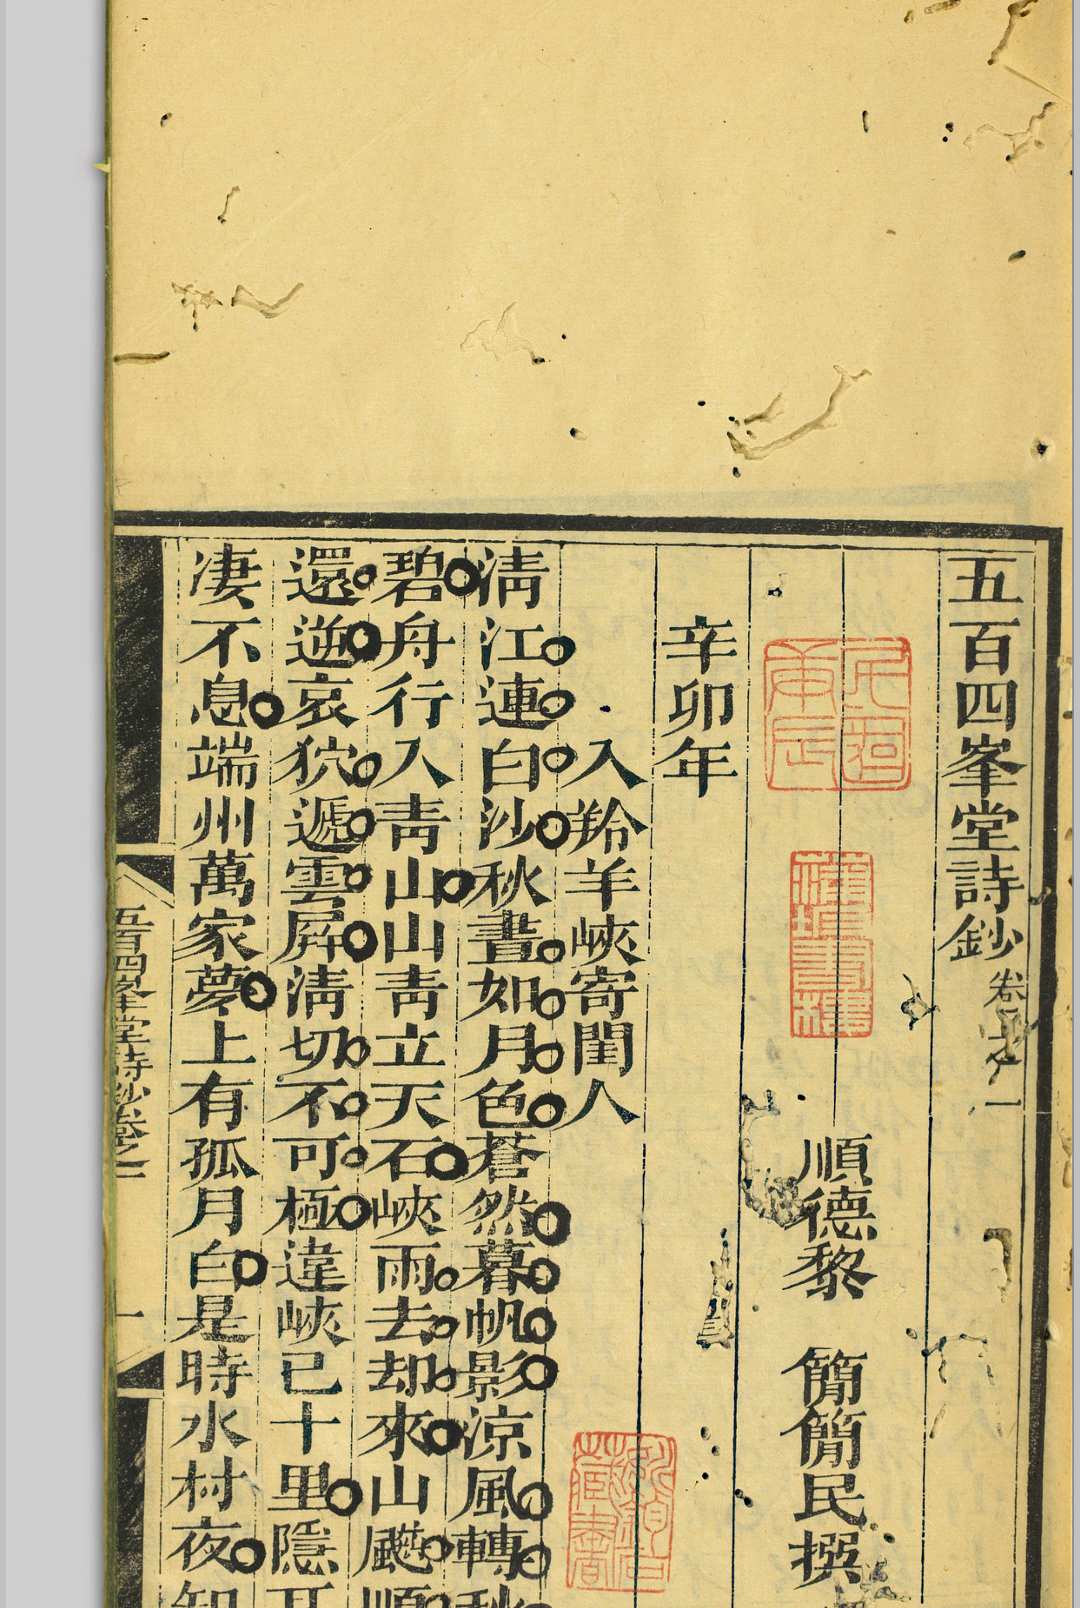 五百四峯堂詩鈔卷之一
順德黎 簡簡民撰
辛卯年
入羚羊峽寄閨人
清江連白沙秋晝如月色蒼然暮帆影涼風轉秋
碧舟行入青山山青立天石峽雨去却來山颸順
還逆哀狖遞雲屏清切不可極違峽已十里隱耳
凄不息端州萬家夢上有孤月白是時水村夜知
五百四峯堂詩鈔卷之一
一